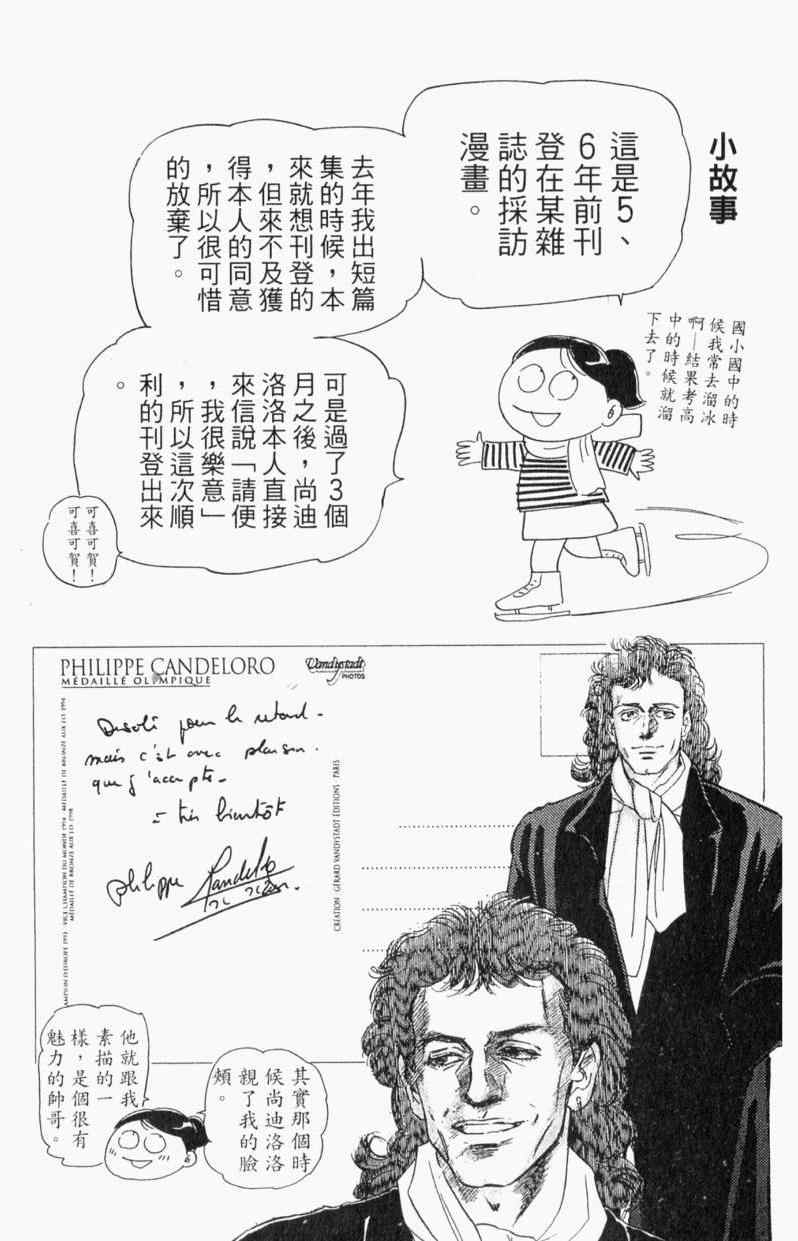 小故事
這是5、
6年前刊
登在某雜
誌的採訪
漫畫。
去年我出短篇
集的時候，本
來就想刊登的
，但來不及獲
得本人的同意
，所以很可惜
的放棄了。
國小國中的時
候我常去溜冰
啊—結果考高
中的時候就溜
下去了。
可是過了3個
月之後，尚迪
洛洛本人直接
來信說「請便
，我很樂意」
，所以這次順
利的刊登出來
。
可喜可賀！
可喜可賀！
PHILIPPE CANDELORO
MÉDAILLE OLYMPIQUE
Vandystadt
PHOTOS
Désolé pour le retard -
mais c'est avec plaisir.
que j'accepte -
à très bientôt
philippe Candeloro
CHAMPION D'EUROPE 1993 - VICE CHAMPION DU MONDE 1994 - MÉDAILLE DE BRONZE AUX J.O 1994
MÉDAILLE DE BRONZE AUX J.O 1998
CRÉATION GÉRARD VANDYSTADT ÉDITIONS PARIS
其實那個時
候尚迪洛洛
親了我的臉
頰。
他就跟我
素描的一
樣，是個很有
魅力的帥哥。